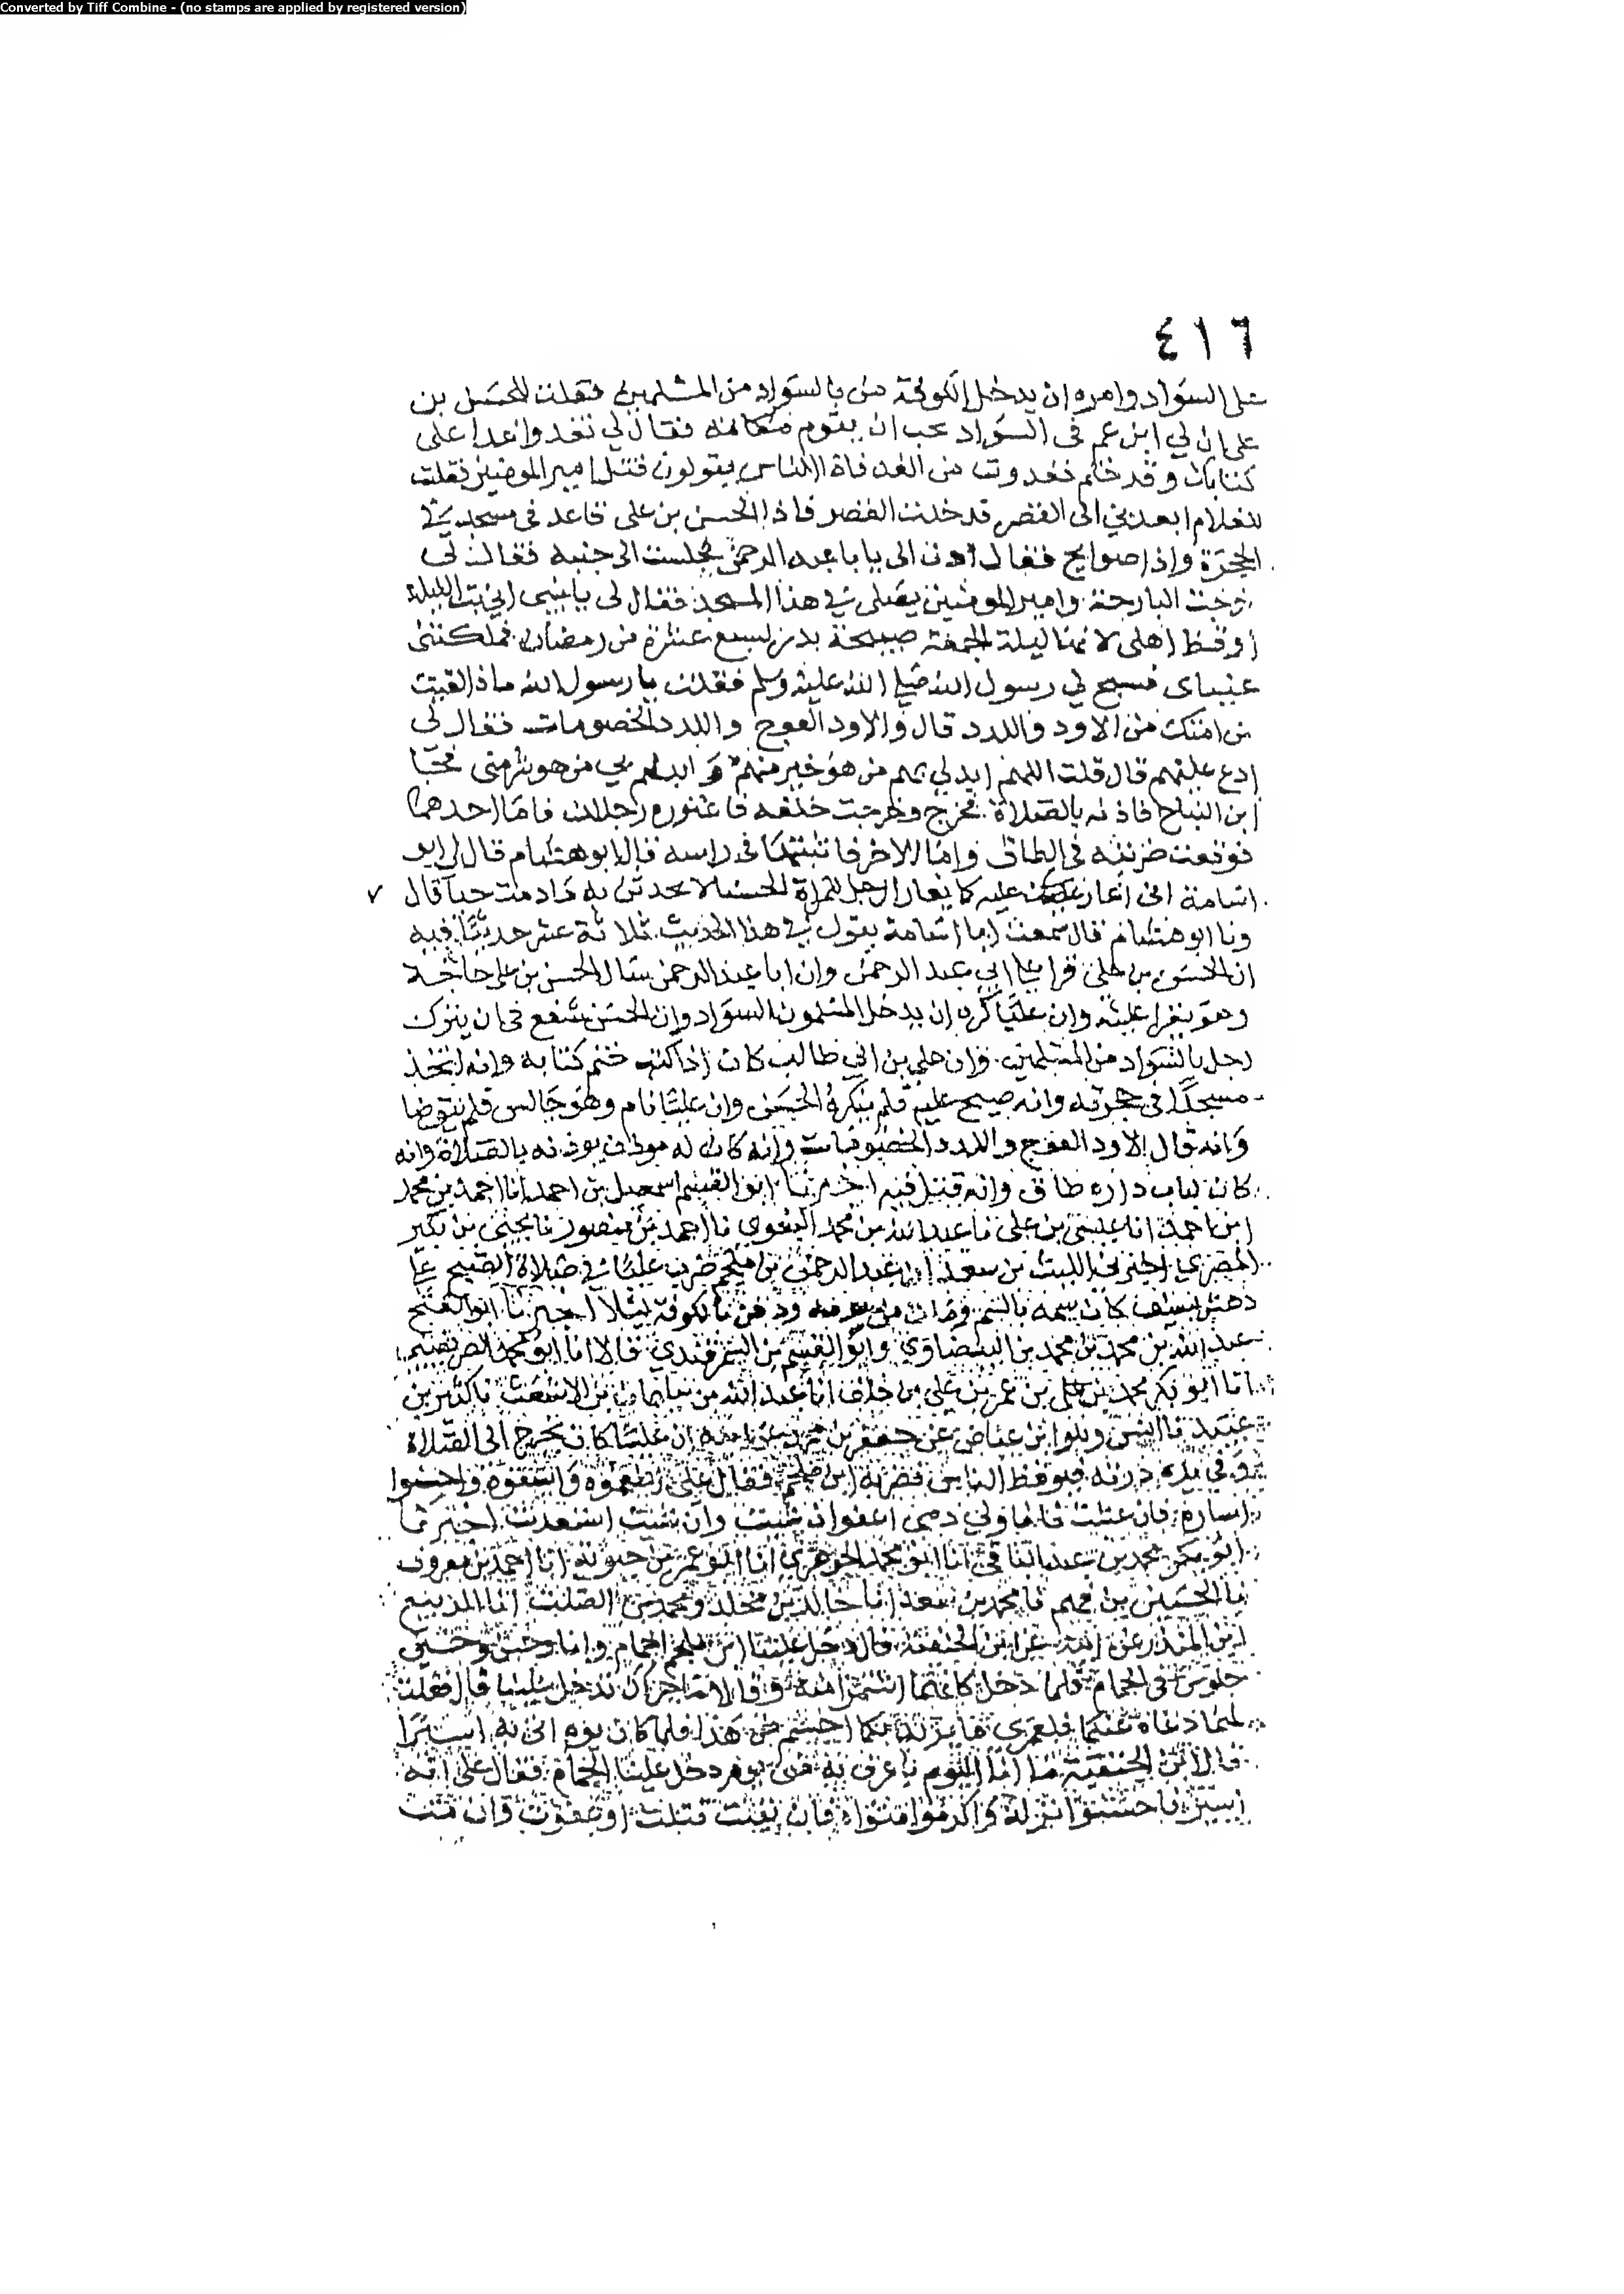 Converted by Tiff Combine - (no stamps are applied by registered version)
٤١٦
السواد وامره ان يدخل الكوفة من بالسواد من المسلمين فقلت للحسن بن
على ان لي ابن عم فى السواد يحب ان يقوم مكانه فقال لي تغدوا غدا على
كتابك وقد ختم فغدوت من الغد فاذا الناس يقولون قتل امير المومنين فقلت
للغلام ابعد بي الى القصر قد خلت القصر فاذا الحسن بن على قاعد فى مسجد في
الحجرة واذا صوايح فقال ادن الى يا با عبد الرحمن فجلست الى جنبه فقال لى
خرجت البارحة وامير المومنين يصلى في هذا المسجد فقال لى يا بني اني بت الليلة
اوقظ اهلى لانها ليلة الجمعة صبيحة بدر لسبع عشرة من رمضان فملكتني
عيناى فسنح لي رسول الله صلى الله عليه وسلم فقلت يا رسول الله ماذا لقيت
من امتك من الاود واللدد قال والاود العوج واللدد الخصومات فقال لى
ادع عليهم قال قلت اللهم ابدلني بهم من هو خير منهم وابدلهم بي من هو شر منى فجا
ابن النباح فاذنه بالصلاة فخرج وخرجت خلفه فاعتوره رجلان فاما احدهما
فوقعت ضربته فى الطاق واما الاخر فاثبتها فى راسه قال ابو هشام قال لى ابو
اسامة انى اغار عليه كما يغار الرجل للمراة الحسنا لا تحدثن به ما دمت حيا قال
ونا ابو هشام قال سمعت ابا اسامة يقول في هذا الحديث ثلاثة عشر حديثا فيه
ان الحسن بن على قرا على ابي عبد الرحمن وان ابا عبد الرحمن سال الحسن بن على حاجة
وهو يقرا عليه وان عليا كره ان يدخل المسلمون السواد وان الحسن شفع فى ان يترك
رجل بالسواد من المسلمين وان على بن ابي طالب كان اذا كتب ختم كتابه وانه اتخذ
مسجدا فى حجرته وانه صيح عليه فلم ينكره الحسن وان عليا نام وهو جالس فلم يتوضا
وانه قال الاود العوج واللدد الخصومات وانه كان له موذن يوذنه بالصلاة وانه
كان لباب داره طاق وانه قتيل فيه اخبرنا ابو القسم اسمعيل بن احمد انا احمد بن محمد
ابن احمد انا عيسى بن على نا عبد الله بن محمد البغوي نا احمد بن منصور نا يحيى بن بكير
المصري اخبرنى الليث بن سعد ان عبد الرحمن بن ملجم ضرب عليا في صلاة الصبح على
دهش بسيف كان سمه بالسم ومات من يومه ودفن بالكوفة ليلا اخبرنا ابو الفتح
عبد الله بن محمد بن محمد بن البيضاوي وابو القسم بن السمرقندي قالا انا ابو محمد الصريفيني
انا ابو بكر محمد بن على بن عمر بن علي بن خلف انا عبد الله بن سليمان بن الاشعث نا كثير بن
عبيد نا انس وهو ابن عياض عن جعفر بن محمد عن ابيه ان عليا كان يخرج الى الصلاة
وفي يده درته فيوقظ الناس فضربه ابن ملجم فقال على اطعموه واسقوه واحسنوا
اساره فان عشت فانا ولي دمى اعفو ان شيت وان شيت استقدت اخبرنا
ابو بكر محمد بن عبد الباقي انا ابو محمد الجوهري انا ابو عمر بن حيويه انا احمد بن معروف
نا الحسين بن فهم نا محمد بن سعد انا خالد بن مخلد ومحمد بن الصلت انا الربيع
ابن المنذر عن ابيه عن ابن الحنفية قال دخل علينا ابن ملجم الحمام وانا وحسن وحسين
جلوس فى الحمام فلما دخل كانهما اشمزا منه وقالا ما اجراك تدخل علينا قال فقلت
لهما دعاه عنكما فلعمرى ما يريد بكما احشم من هذا فلما كان يوم اتى به اسيرا
قال ابن الحنفية ما انا اليوم باعرف به منى يوم دخل علينا الحمام فقال على انه
اسير فاحسنوا نزله واكرموا مثواه فان بقيت قتلت او عفوت وان مت